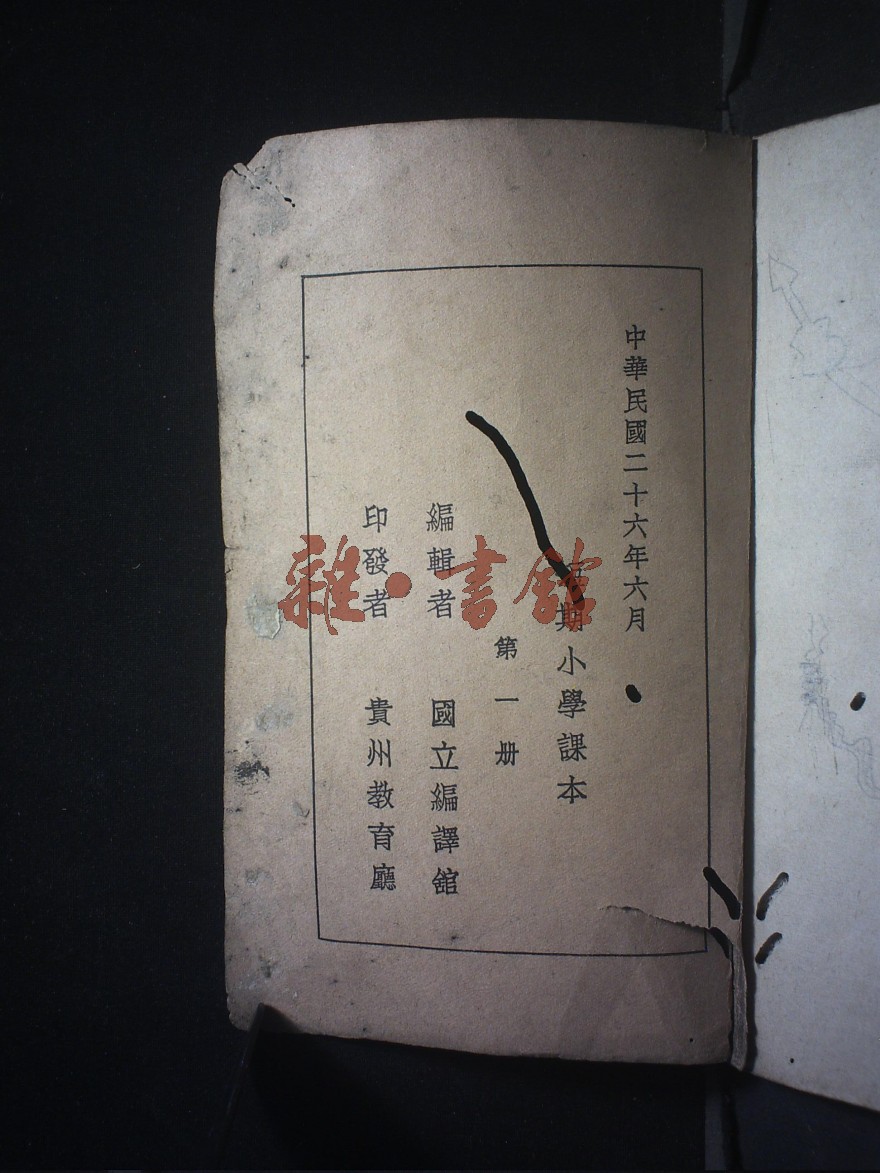 中華民國二十六年六月
期小學課本
第一册
編輯者 國立編譯舘
印發者 貴州教育廳
雜·書館